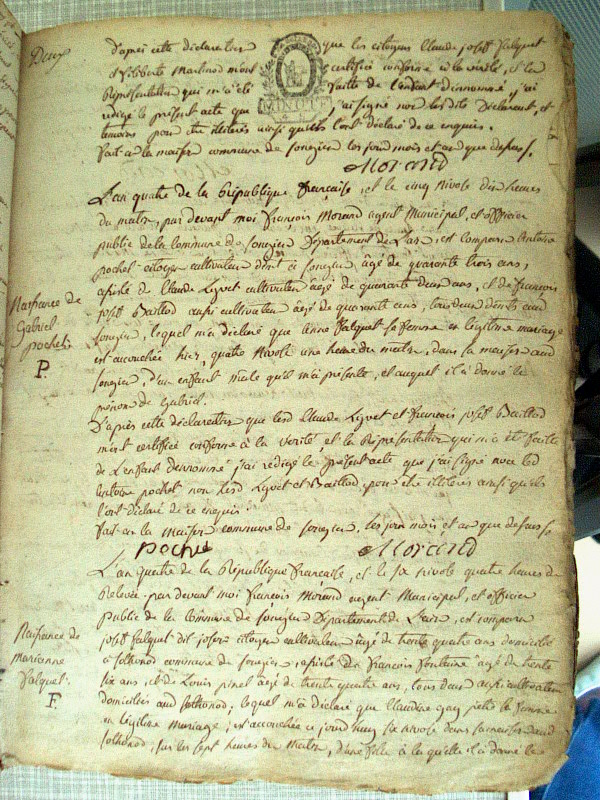 Deux
d'après cette déclaration que les citoyens Claude joseph falquet
et Philiberte Martinod m'ont certifié conforme à la vérité, et la
Représentation qui m'a été faitte de l'enfant dénommé, j'ai
redigé le présent acte que j'ai signé non lesdits Déclarant, et
témoins pour être illitérés ainsi qu'ils l'ont déclaré de ce enquis.
fait en la maison commune de Songieu les jour mois et an que dessus.
Morand
L'an quatre de la République française, et le cinq nivose dix heures
du matin, par devant moi françois Morand agent Municipal, et officier
public de la Commune de Songieu Département de L'ain, est comparu Antoine
pochet citoyen cultivateur dudit Songieu âgé de quarante trois ans,
assisté de Claude Lyvet cultivateur âgé de quarante deux ans, et de françois
joseph Baillod aussi cultivateur âgé de quarante ans, tous deux audit
Songieu, lequel m'a déclaré que Anne falquet sa femme en légitime mariage
est accouchée hier, quatre Nivose une heure du matin, dans sa maison aud
Songieu, d'un enfant mâle qu'il m'a présenté, et auquel il a donné le
prénom de Gabriel.
Naissance de
Gabriel
pochet.
P.
D'après cette déclaration que lesd Claude Lyvet et françois joseph Baillod
m'ont certifié conforme à la verité, et la Représentation qui m'a été faite
de L'enfant denommé, j'ai redigé le présent acte que j'ai signé avec led
Antoine pochet non lesd Lyvet et Baillod, pour être illitérés ainsi qu'ils
l'ont déclaré de ce enquis.
fait en la Maison commune de Songieu. les jour mois et an que dessus
Pochet Morand
L'an quatre de la République francaise, et le six nivose quatre heures de
Relevée, par devant moi françois Morand agent Municipal, et officier
public de la Commune de Songieu Département de L'ain, est comparu
joseph falquet dit citoyen cultivateur âgé de trente quatre ans domicilié
à Sothonod commune de Songieu, assisté de François fontaine agé de trente
six ans, et de Louis pinet âgé de trente quatre ans, tous deux aussi cultivateurs
domiciliés aud Sothonod, lequel m'a déclaré que Claudine gay sa femme
en légitime Mariage, est accouchée ce jourd'huy six nivose dans sa maison aud
Sothonod, sur les sept heures du Matin, d'une fille à laquelle il a donné le
Naissance de
marianne
falquet.
F.